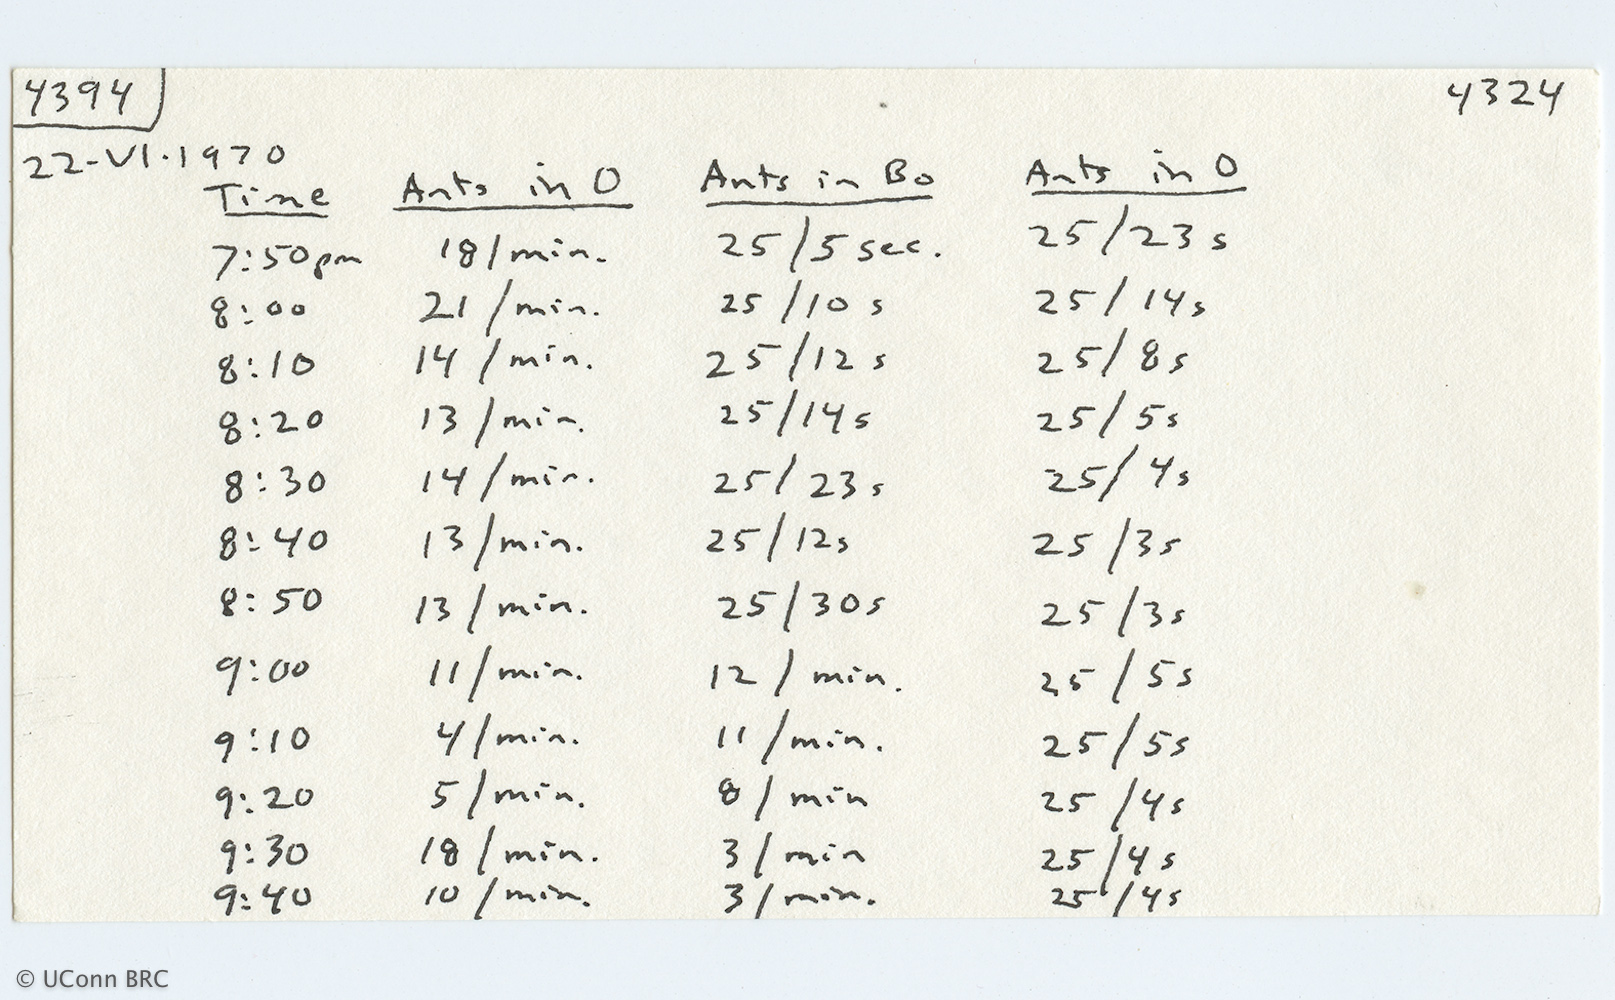 4394 4324
22-VI.1970
Time Ants in O Ants in Bo Ants in O
7:50pm 18/min. 25/5 sec. 25/23 s
8:00 21/min. 25/10 s 25/14s
8:10 14/min. 25/12 s 25/8s
8:20 13/min. 25/14s 25/5s
8:30 14/min. 25/23 s 25/4s
8:40 13/min. 25/12s 25/3s
8:50 13/min. 25/30s 25/3s
9:00 11/min. 12/min. 25/5s
9:10 4/min. 11/min. 25/5s
9:20 5/min. 8/min 25/4s
9:30 18/min. 3/min 25/4s
9:40 10/min. 3/min. 25/4s
© UConn BRC